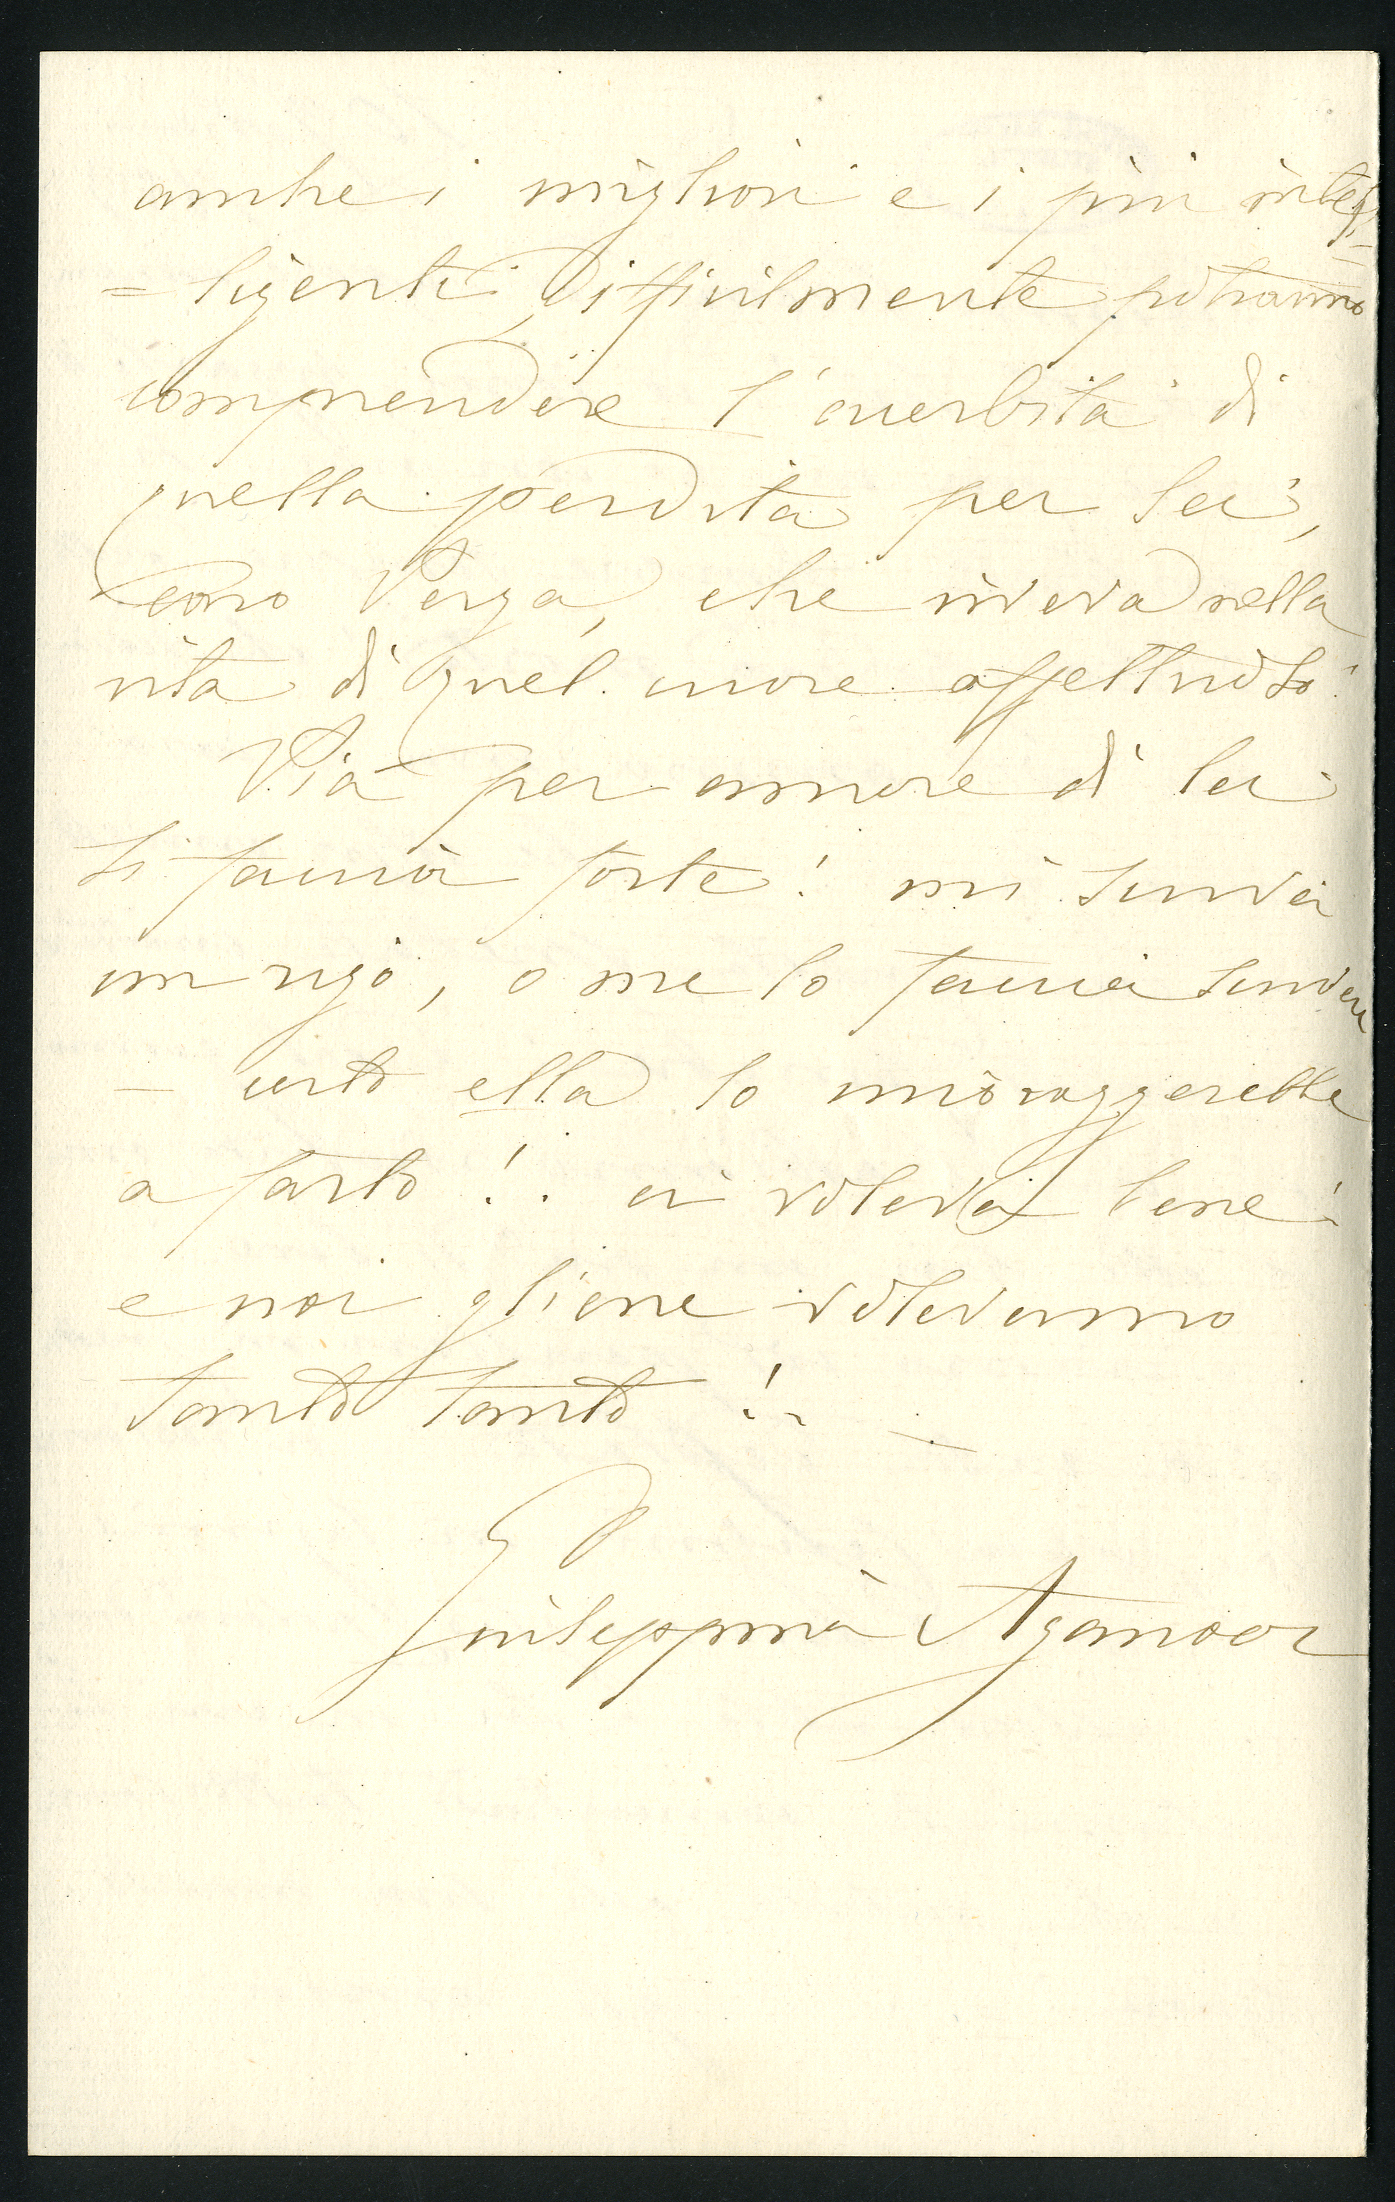 anche i migliori e i più intel=
=ligenti, difficilmente potranno
comprendere l'acerbità di
quella perdita per lei,
caro Verga, che viveva nella
vita di quel cuore affettuoso!
Via per amore di lei
si faccia forte! mi scriva
un rigo, o me lo faccia scrivere
– certo ella lo incoraggerebbe
a farlo!. ci voleva bene!
e noi gliene volevamo
tanto tanto!.. –
Giuseppina Aganoor